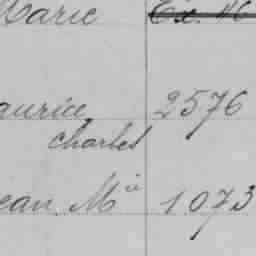 Marie Ex. 46
aurice 2576
charles
ean Mie 1073